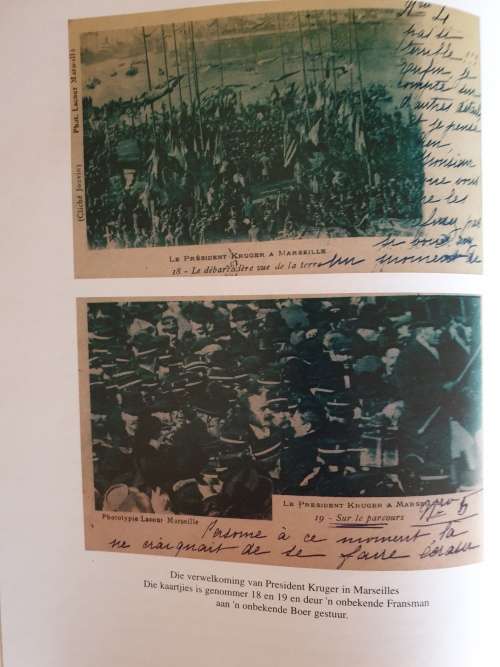 Mme L
pas si
terrible !!!
enfin, je
compte sur
d'autres détails
et je pense
bien,
que vous
me les
Phot. Lacour Marseille
(Cliché Jouvin)
LE PRÉSIDENT KRUGER A MARSEILLE
18 - Le débarcadère vue de la terre
un moment de
LE PRÉSIDENT KRUGER A MARSE
19 - Sur le parcours
Phototypie Lacour Marseille
Personne à ce moment là
ne craignait de se faire écraser
Die verwelkoming van President Kruger in Marseilles
Die kaartjies is genommer 18 en 19 en deur 'n onbekende Fransman
aan 'n onbekende Boer gestuur.